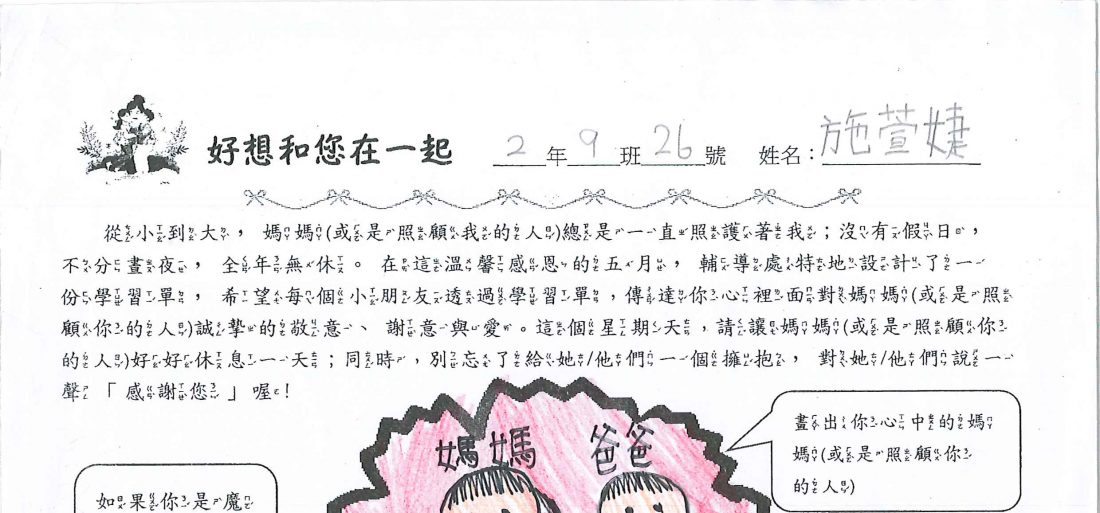 好想和您在一起 2 年 9 班 26 號 姓名：施萱婕
從小到大，媽媽(或是照顧我的人)總是一直照護著我；沒有假日，
不分晝夜，全年無休。在這溫馨感恩的五月，輔導處特地設計了一
份學習單，希望每個小朋友透過學習單，傳達你心裡面對媽媽(或是照
顧你的人)誠摯的敬意、謝意與愛。這個星期天，請讓媽媽(或是照顧你
的人)好好休息一天；同時，別忘了給她/他們一個擁抱，對她/他們說一
聲「感謝您」喔！
媽媽 爸爸
畫出你心中的媽
媽(或是照顧你
的人)
如果你是魔